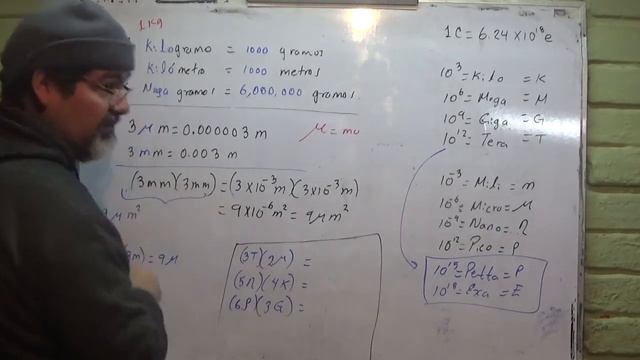 1 Kg
Kilogramo = 1000 gramos
Kilómetro = 1000 metros
Mega gramos = 6,000,000 gramos.
3 μm = 0.000003 m
μ = mu
3 mm = 0.003 m
(3mm)(3mm) = (3×10⁻³m)(3×10⁻³m)
= 9×10⁻⁶m² = 9μm²
μm²
m) = 9μ
(3T)(2μ) =
(5n)(4K) =
(6P)(3G) =
1C = 6.24 ×10¹⁸e
10³ = Kilo = K
10⁶ = Mega = M
10⁹ = Giga = G
10¹² = Tera = T
10⁻³ = Mili = m
10⁻⁶ = Micro = μ
10⁻⁹ = Nano = n
10⁻¹² = Pico = P
10¹⁵ = Petta = P
10¹⁸ = Exa = E